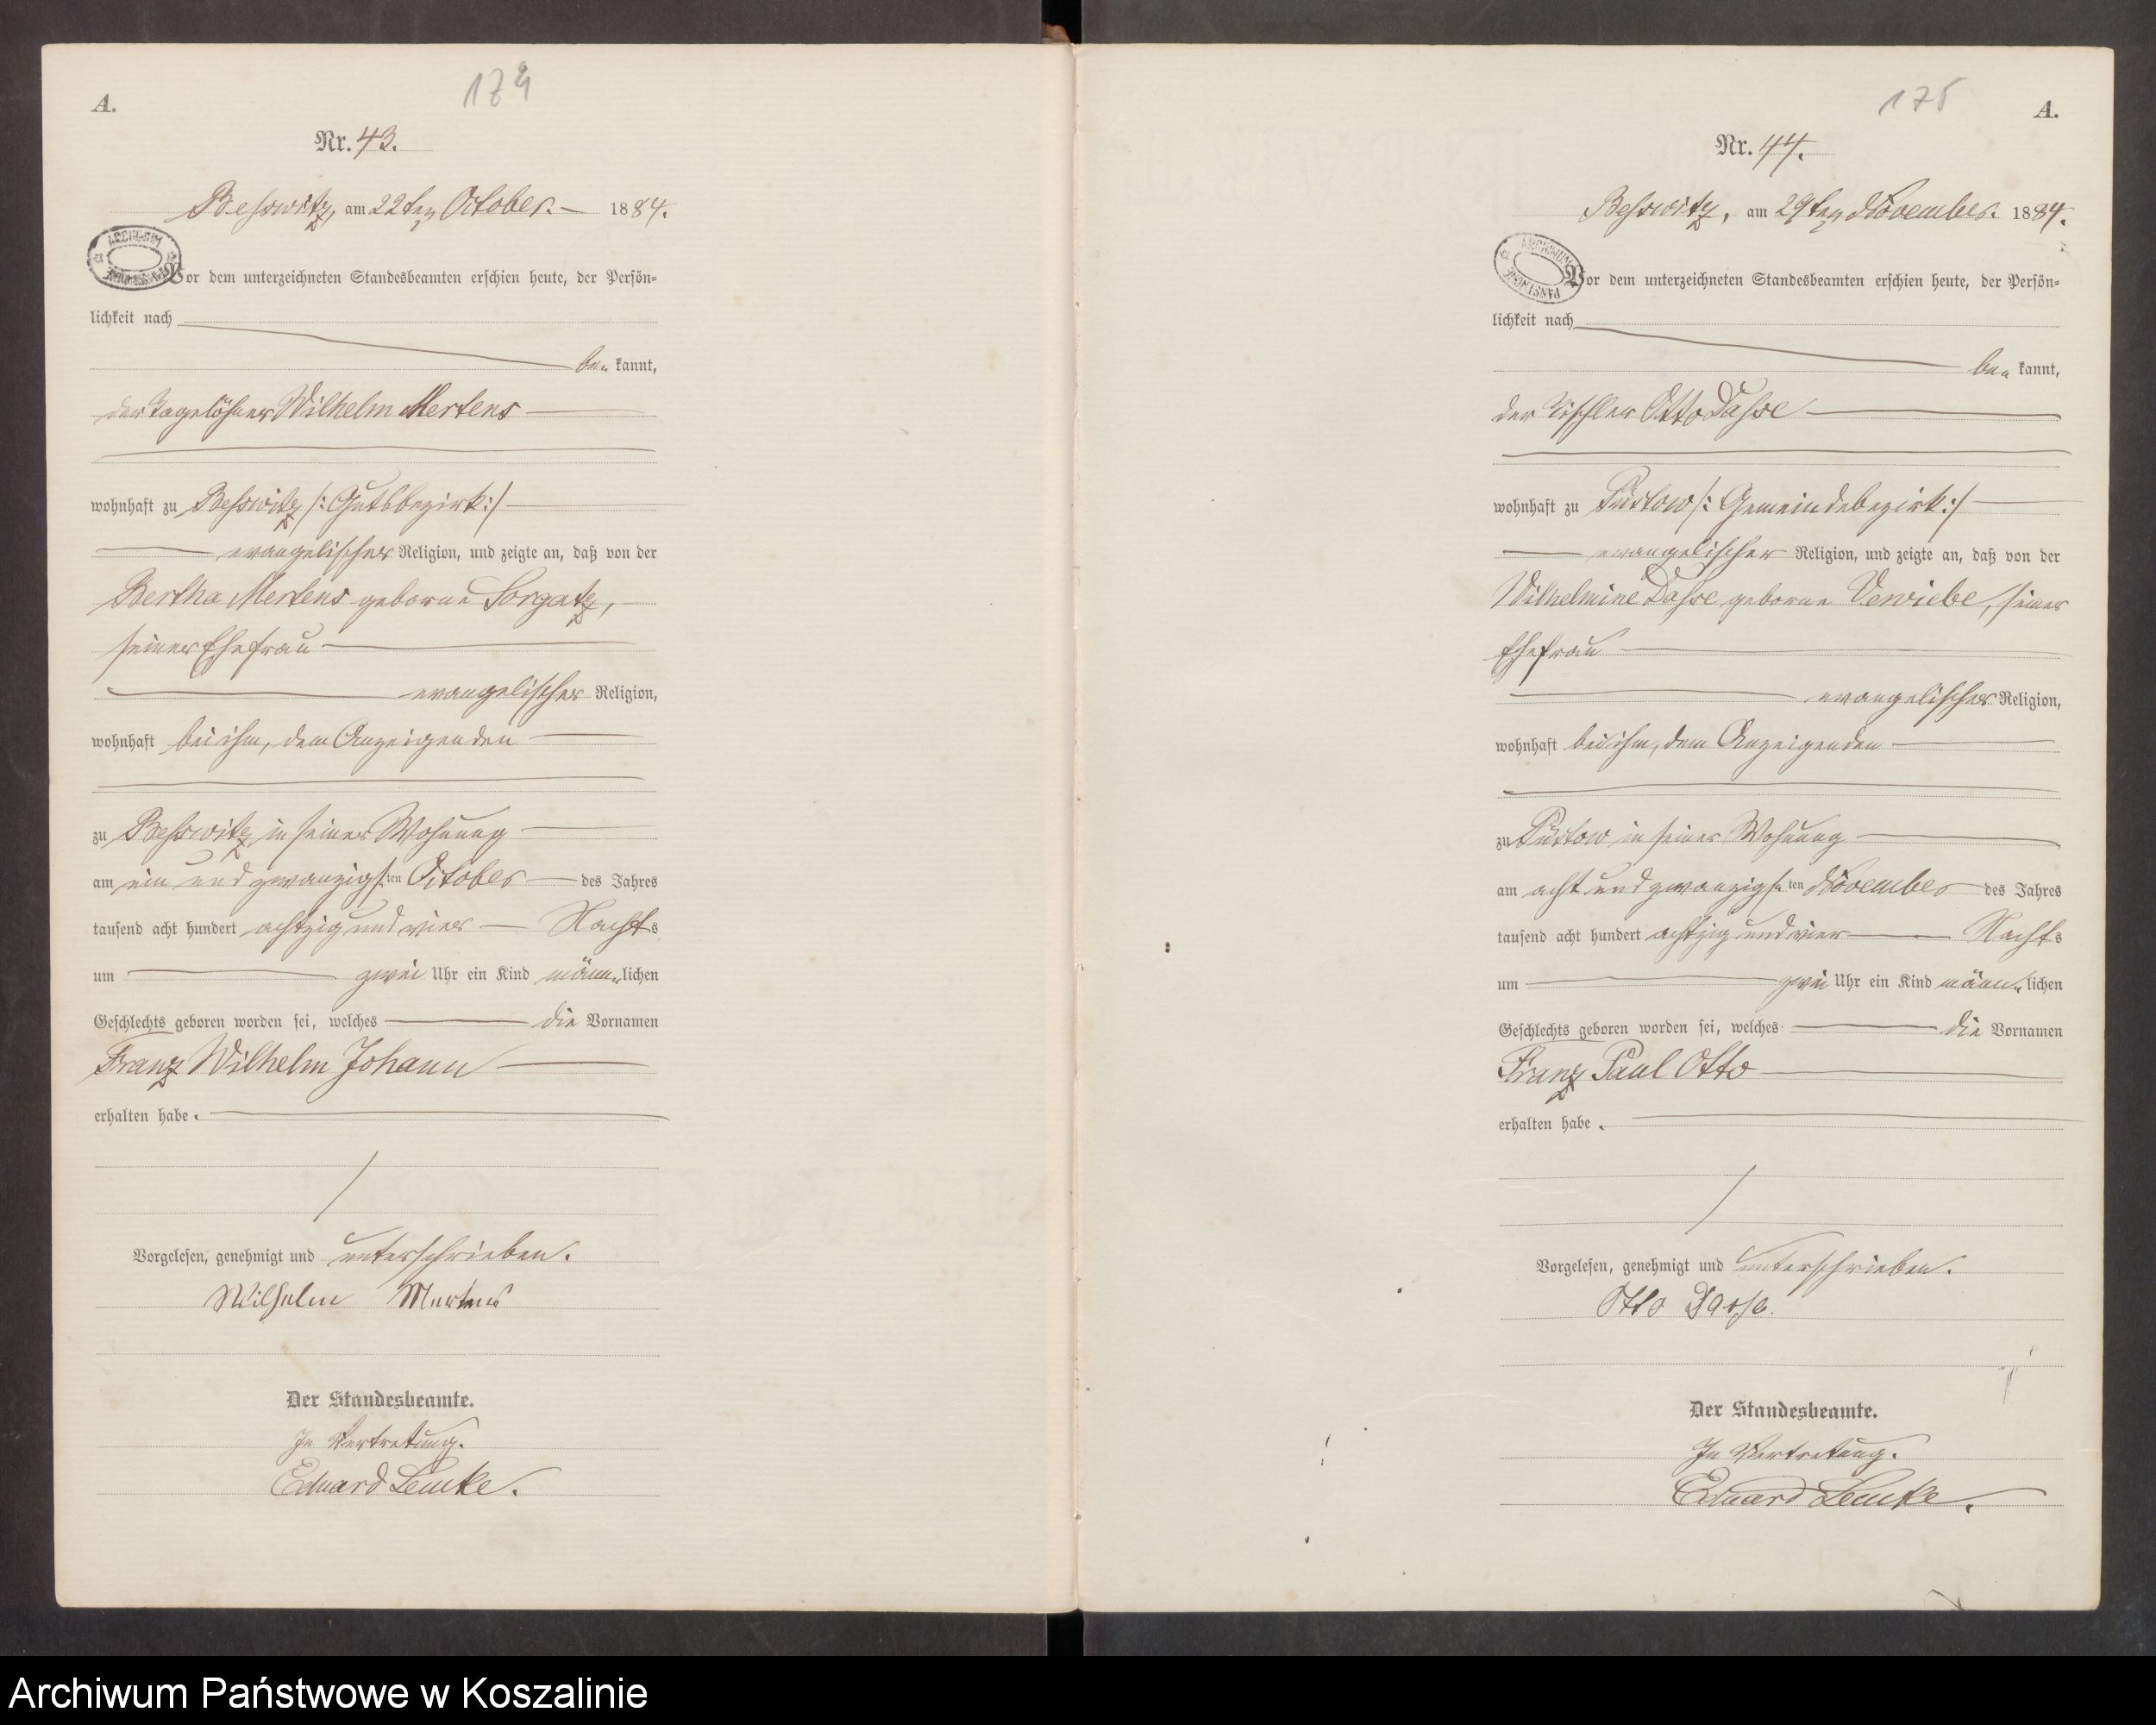 174
A.
Nr. 43.
Besswitz, am 22ten October. 1884.
Vor dem unterzeichneten Standesbeamten erschien heute, der Persön-
lichkeit nach
be- kannt,
der Tagelöhner Wilhelm Mertens
wohnhaft zu Besswitz /: Gutsbezirk :/
evangelischer Religion, und zeigte an, daß von der
Bertha Mertens geborne Sorgatz,
seiner Ehefrau
evangelischer Religion,
wohnhaft bei ihm, dem Anzeigenden
zu Besswitz in seiner Wohnung
am ein und zwanzigsten October des Jahres
tausend acht hundert achtzig und vier Nachts
um zwei Uhr ein Kind männ-lichen
Geschlechts geboren worden sei, welches die Vornamen
Franz Wilhelm Johann
erhalten habe.
Vorgelesen, genehmigt und unterschrieben.
Wilhelm Mertens
Der Standesbeamte.
In Vertretung.
Eduard Lemke.
175
A.
Nr. 44.
Besswitz, am 29ten November. 1884.
ARCHIWUM PAŃSTWOWE
Vor dem unterzeichneten Standesbeamten erschien heute, der Persön-
lichkeit nach
be- kannt,
der Tischler Otto Dasse
wohnhaft zu Püstow /: Gemeindebezirk :/
evangelischer Religion, und zeigte an, daß von der
Wilhelmine Dasse geborne Vewiebe, seiner
Ehefrau
evangelischer Religion,
wohnhaft bei ihm, dem Anzeigenden
zu Püstow in seiner Wohnung
am acht und zwanzigsten November des Jahres
tausend acht hundert achtzig und vier Nachts
um zwei Uhr ein Kind männ-lichen
Geschlechts geboren worden sei, welches die Vornamen
Franz Paul Otto
erhalten habe.
Vorgelesen, genehmigt und unterschrieben.
Otto Dasse.
Der Standesbeamte.
In Vertretung.
Eduard Lemke.
Archiwum Państwowe w Koszalinie